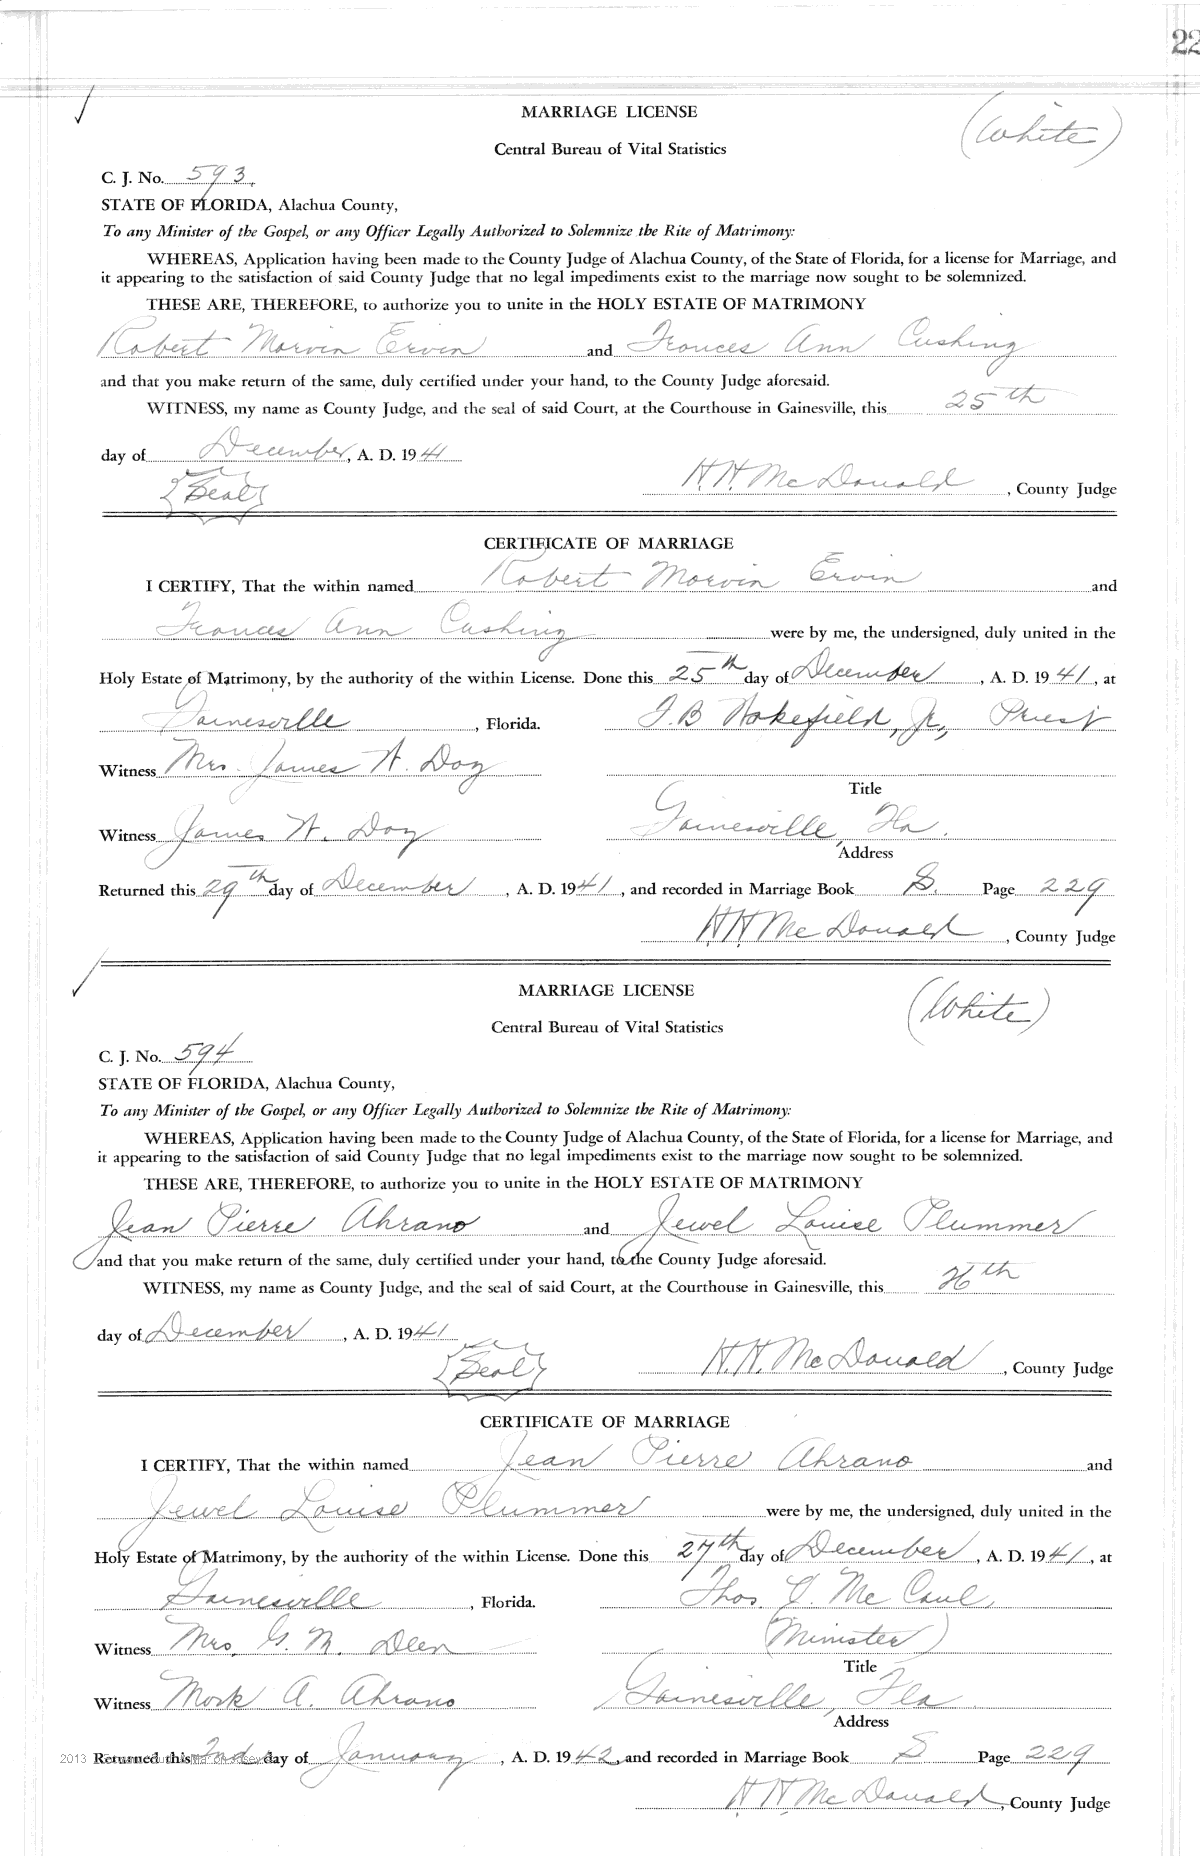 22
MARRIAGE LICENSE
(White)
Central Bureau of Vital Statistics
C. J. No. 593.
STATE OF FLORIDA, Alachua County,
To any Minister of the Gospel, or any Officer Legally Authorized to Solemnize the Rite of Matrimony:
WHEREAS, Application having been made to the County Judge of Alachua County, of the State of Florida, for a license for Marriage, and
it appearing to the satisfaction of said County Judge that no legal impediments exist to the marriage now sought to be solemnized.
THESE ARE, THEREFORE, to authorize you to unite in the HOLY ESTATE OF MATRIMONY
Robert Marvin Ervin and Frances Ann Cushing
and that you make return of the same, duly certified under your hand, to the County Judge aforesaid.
WITNESS, my name as County Judge, and the seal of said Court, at the Courthouse in Gainesville, this 25th
day of December, A. D. 1941
(Seal) H.H. McDonald, County Judge
CERTIFICATE OF MARRIAGE
I CERTIFY, That the within named Robert Marvin Ervin and
Frances Ann Cushing were by me, the undersigned, duly united in the
Holy Estate of Matrimony, by the authority of the within License. Done this 25th day of December, A. D. 1941, at
Gainesville, Florida. F.B Wakefield, Jr., Priest
Witness Mrs. James W. Day
Title
Witness James W. Day Gainesville, Fla.
Address
Returned this 29th day of December, A. D. 1941, and recorded in Marriage Book S. Page 229
H.H. McDonald, County Judge
MARRIAGE LICENSE
(White)
Central Bureau of Vital Statistics
C. J. No. 594
STATE OF FLORIDA, Alachua County,
To any Minister of the Gospel, or any Officer Legally Authorized to Solemnize the Rite of Matrimony:
WHEREAS, Application having been made to the County Judge of Alachua County, of the State of Florida, for a license for Marriage, and
it appearing to the satisfaction of said County Judge that no legal impediments exist to the marriage now sought to be solemnized.
THESE ARE, THEREFORE, to authorize you to unite in the HOLY ESTATE OF MATRIMONY
Jean Pierre Ahrano and Jewel Louise Plummer
and that you make return of the same, duly certified under your hand, to the County Judge aforesaid.
WITNESS, my name as County Judge, and the seal of said Court, at the Courthouse in Gainesville, this 26th
day of December, A. D. 1941
(Seal) H.H. McDonald, County Judge
CERTIFICATE OF MARRIAGE
I CERTIFY, That the within named Jean Pierre Ahrano and
Jewel Louise Plummer were by me, the undersigned, duly united in the
Holy Estate of Matrimony, by the authority of the within License. Done this 27th day of December, A. D. 1941, at
Gainesville, Florida. Thos. V. McCaul,
Witness Mrs. G. M. Deen (Minister)
Title
Witness Mark A. Ahrano Gainesville, Fla
Address
2013
Returned this 2nd day of January, A. D. 1942, and recorded in Marriage Book S Page 229
H.H. McDonald, County Judge